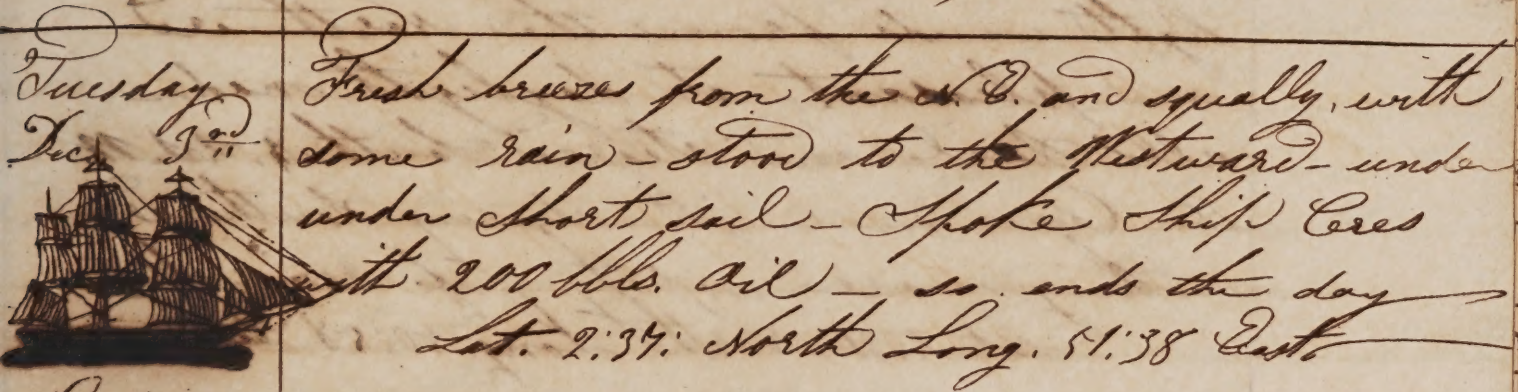 Tuesday
Dec. 3rd
Fresh breezes from the N.E. and squally, with
some rain – stood to the Westward – under
under Short sail – Spoke Ship Ceres
with 200 bbls. Oil – so ends the day
Lat. 2:37: North Long. 51:38 East